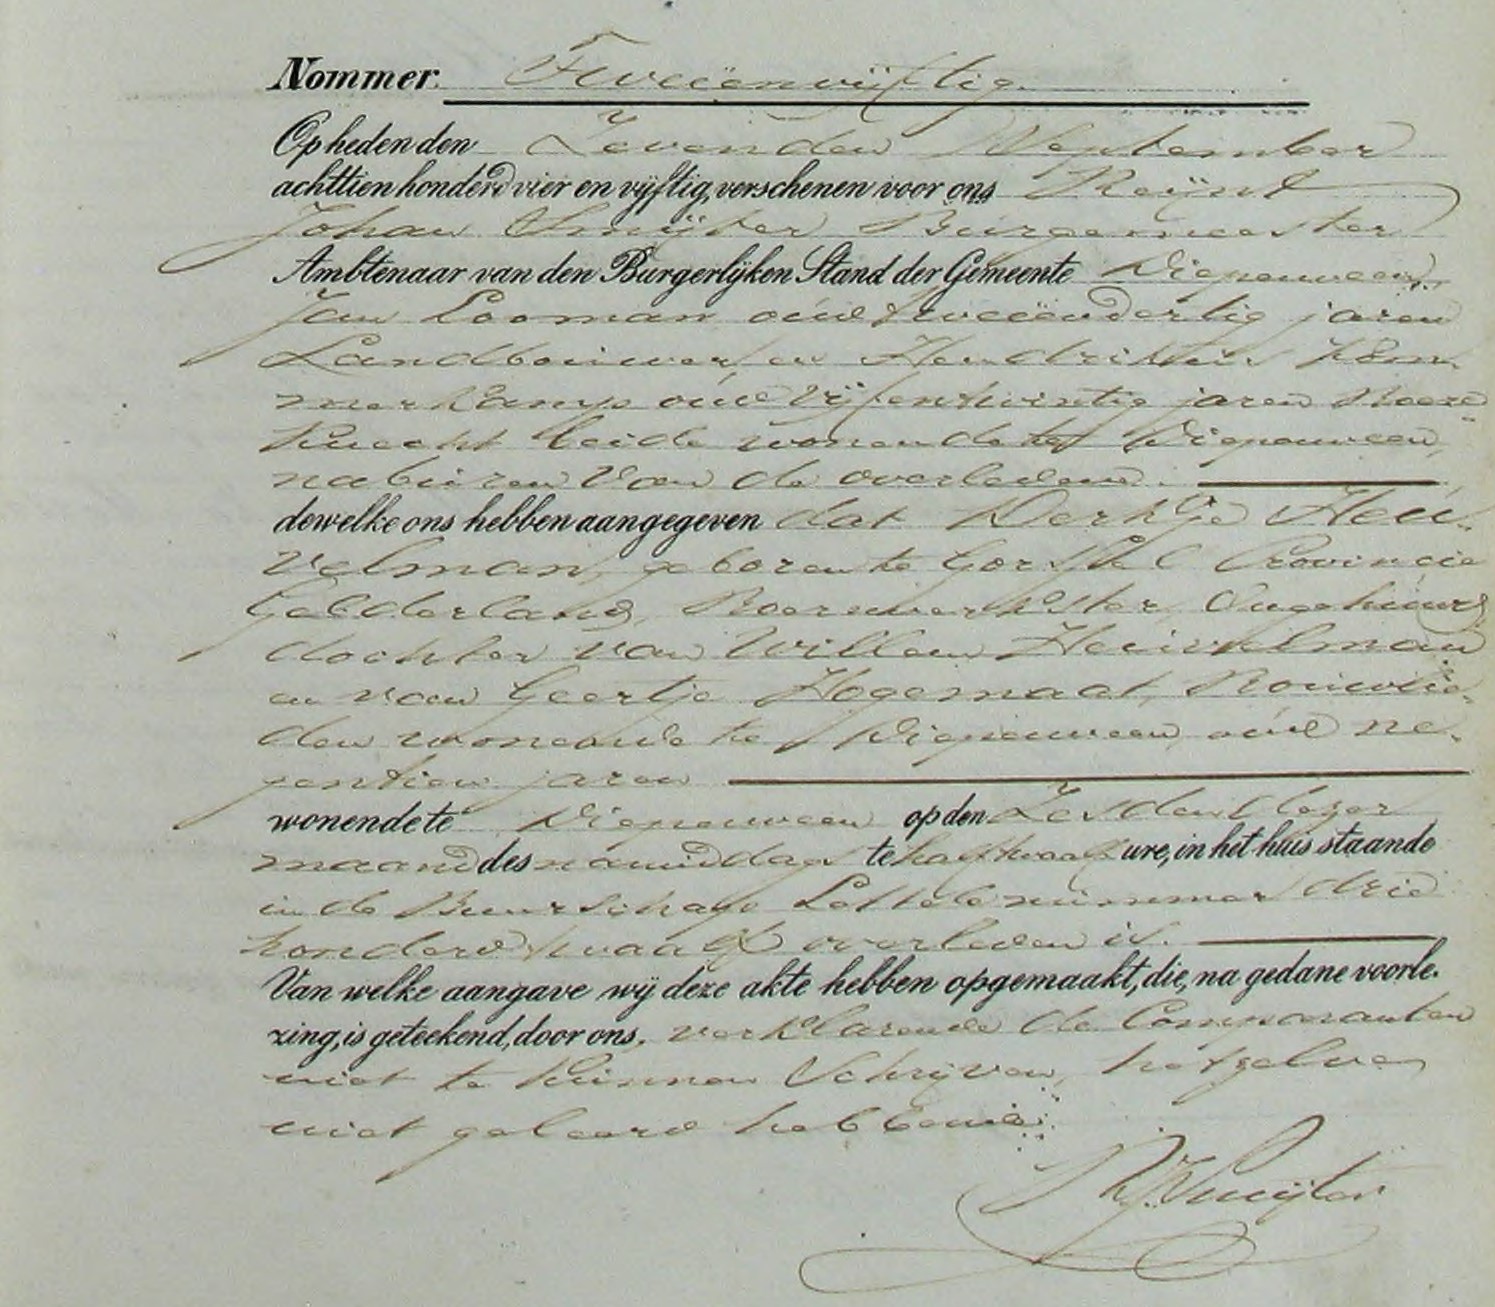 Nommer. Tweeënvijftig.
Op heden den Zevenden September
achttien honderd vier en vijftig, verschenen voor ons Reijnt
Johan Smijter Burgemeester
Ambtenaar van den Burgerlijken Stand der Gemeente Diepenveen,
Jan Looman oud tweeëndertig jaren
Landbouwer en Hendrikus Kom-
merkamp oud vijfentwintig jaren Boere
knecht beide wonende te Diepenveen,
naburen van de overledene.
dewelke ons hebben aangegeven dat Derkje Heu-
velman, geboren te Gorssel Provincie
Gelderland, Boerwerkster, Ongehuwd
dochter van Willem Heuvelman
en van Geertje Hogemaat, Bouwlie-
den wonende te Diepenveen, oud ne-
gentien jaren
wonende te Diepenveen op den Zesden dezer
maand des namiddags te half twaalf ure, in het huis staande
in de Buurschap Lettele nummer drie
honderd twaalf overleden is.
Van welke aangave wij deze akte hebben opgemaakt, die, na gedane voorle-
zing, is geteekend, door ons, verklarende de Comparanten
niet te kunnen Schrijven, hetzelve
niet geleerd hebbende.
RJ Smijter